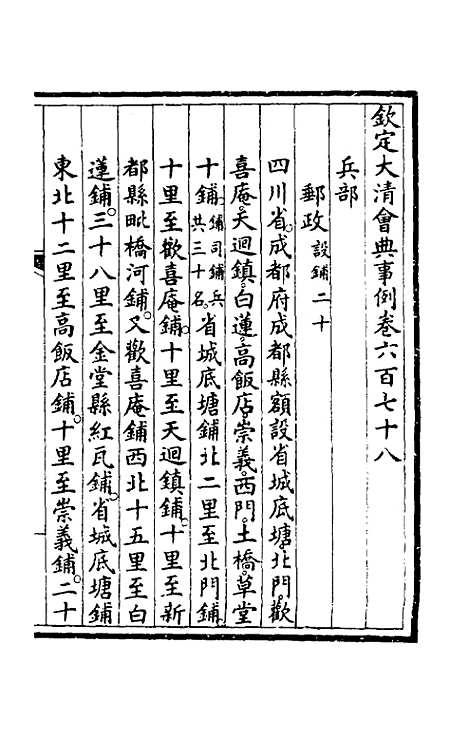 欽定大清會典事例卷六百七十八
兵部
郵政設鋪二十
四川省。成都府成都縣額設省城底塘。北門。歡
喜庵。天迴鎮。白蓮。高飯店。崇義。西門。土橋。草堂
十鋪。鋪司鋪兵共三十名。省城底塘鋪北二里至北門鋪。
十里至歡喜庵鋪。十里至天迴鎮鋪。十里至新
都縣毗橋河鋪。又歡喜庵鋪西北十五里至白
蓮鋪。三十八里至金堂縣紅瓦鋪。省城底塘鋪
東北十二里至高飯店鋪。十里至崇義鋪。二十